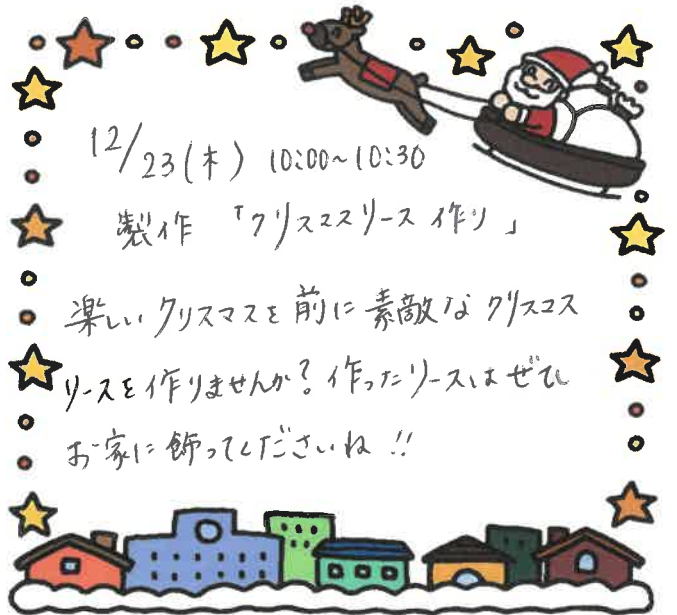 12/23(木) 10:00~10:30
製作 「クリスマスリース作り」
楽しいクリスマスを前に素敵なクリスマス
リースを作りませんか?作ったリースはぜひ
お家に飾ってくださいね!!